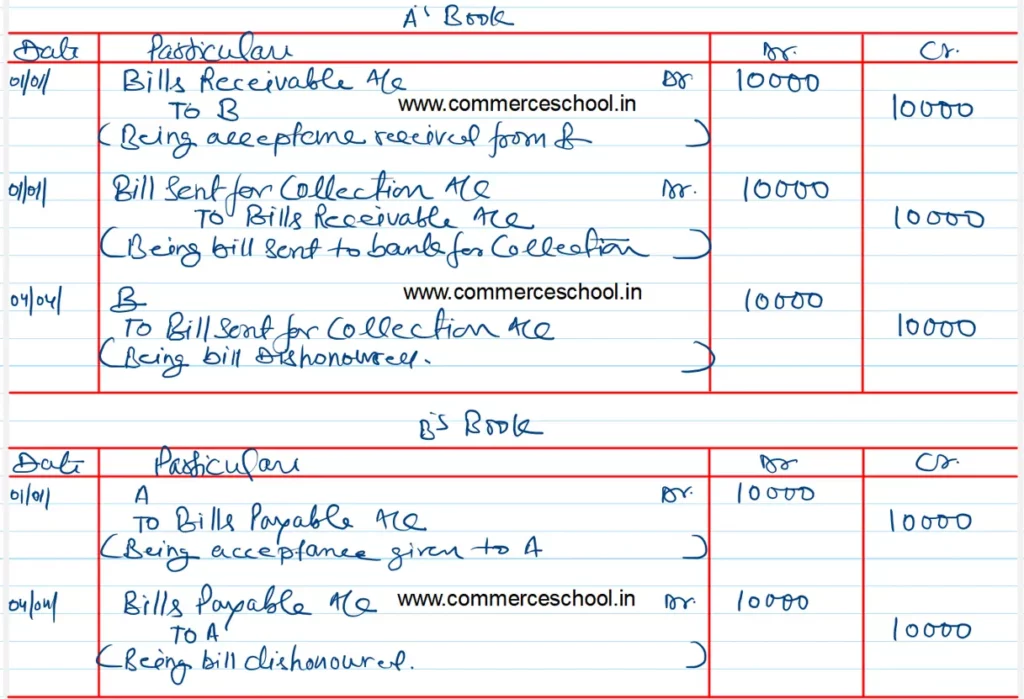 A's Book
Date Particulars Dr. Cr.
01/01/ Bills Receivable A/c Dr 10000
To B www.commerceschool.in 10000
(Being acceptance received from B)
01/01/ Bill Sent for Collection A/c Dr. 10000
To Bills Receivable A/c 10000
(Being bill sent to bank for Collection)
04/04/ B www.commerceschool.in 10000
To Bill Sent for Collection A/c 10000
(Being bill Dishonoured.)
B's Book
Date Particulars Dr Cr.
01/01/ A Dr. 10000
To Bills Payable A/c 10000
(Being acceptance given to A)
04/04/ Bills Payable A/c www.commerceschool.in Dr. 10000
To A 10000
(Being bill dishonoured.)